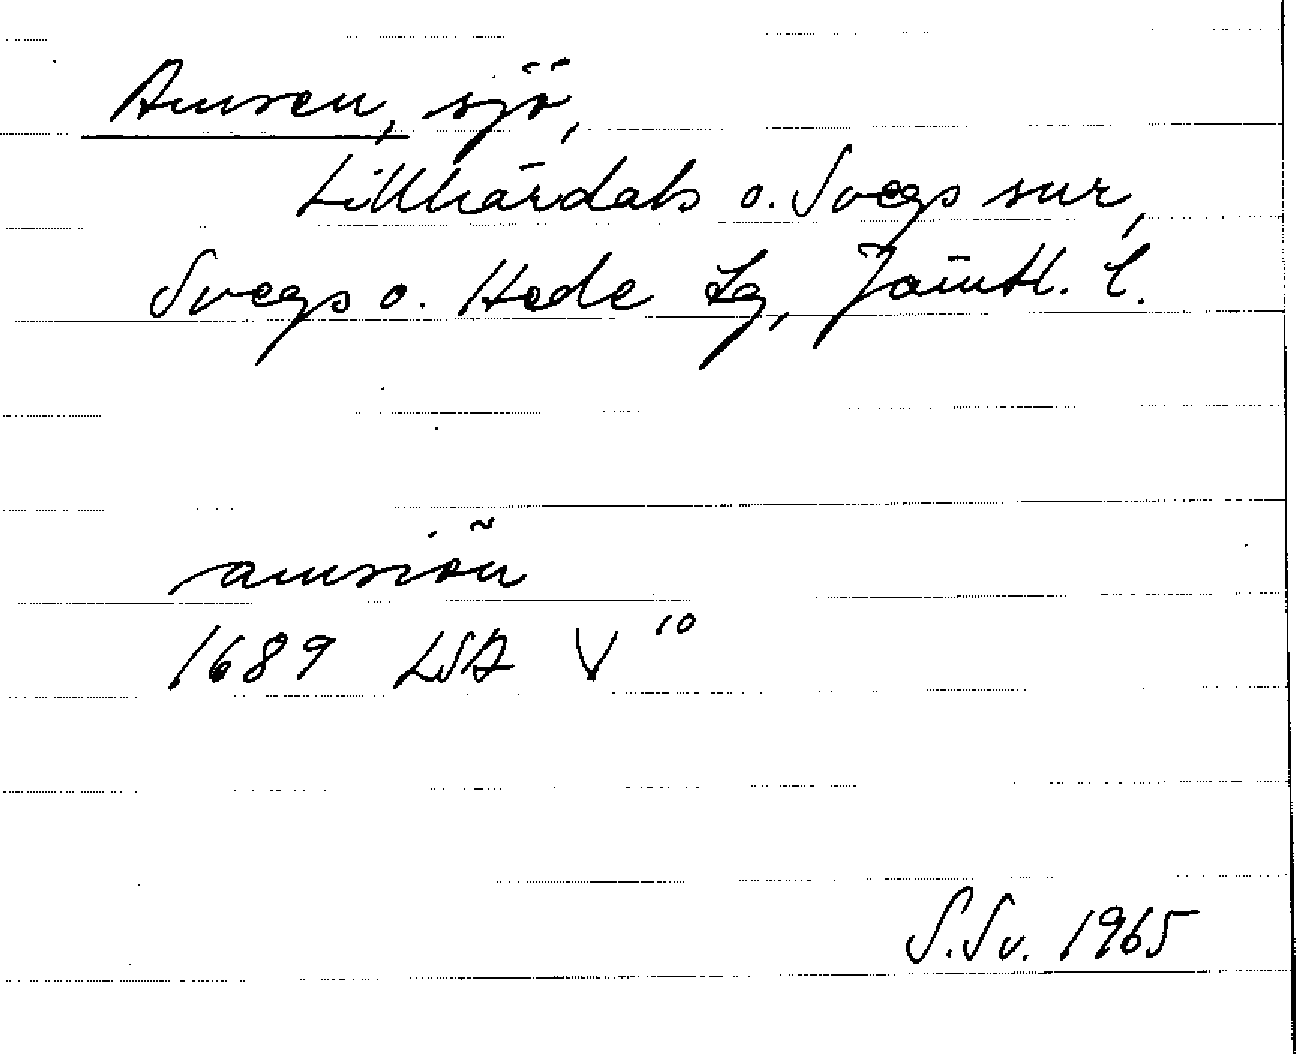 Amsen, sjö,
Lillhärdals o. Svegs snr,
Svegs o. Hede tg, Jämtl. l.
amsiön
1689 LSA V¹⁰
S.Sv. 1965